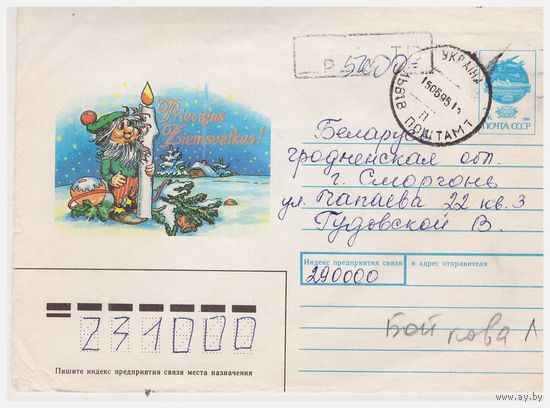 Priecīgus
Ziemsvētkus!
Р 5400
УКРАЇНА
ЛЬВІВ
ПОШТАМТ
ПОЧТА СССР
Беларусь
гродненская обл.
г. Сморгонь
ул. Чапаева 22 кв. 3
Гудовской В.
Индекс предприятия связи и адрес отправителя
290000
Бойкова Л
231000
Пишите индекс предприятия связи места назначения
www.ay.by